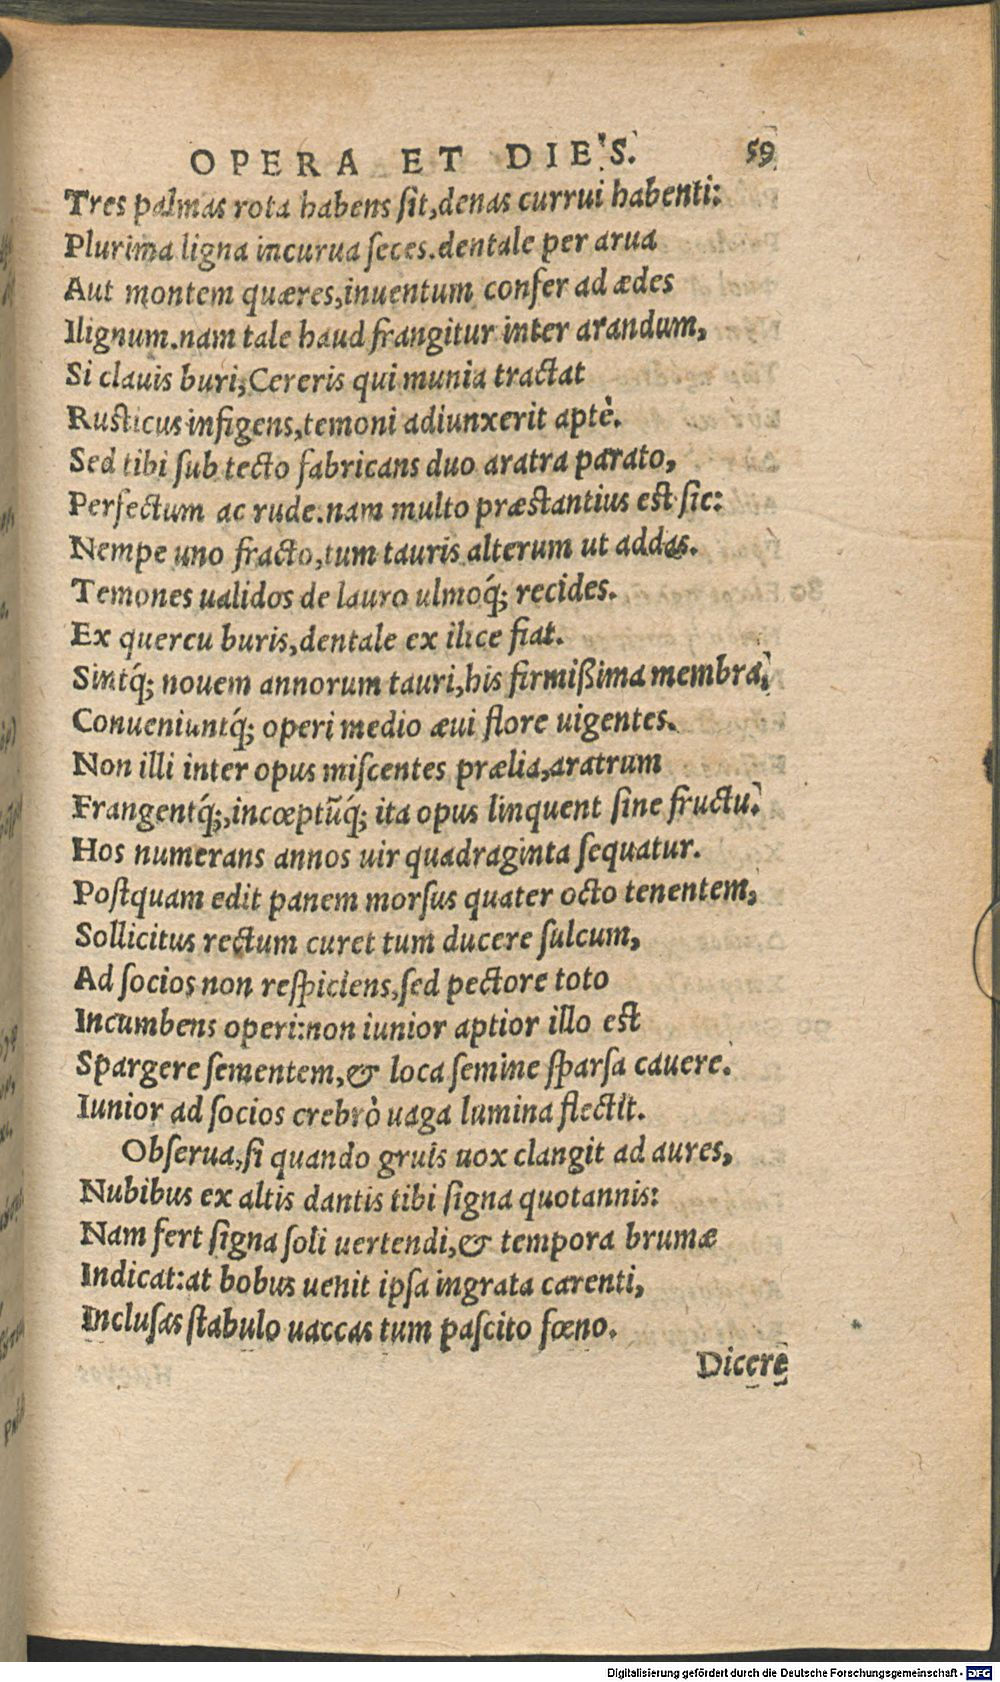 OPERA ET DIES. 59
Tres palmas rota habens ſit,denas currui habenti:
Plurima ligna incurua ſeces.dentale per arua
Aut montem quæres,inuentum confer ad ædes
Ilignum.nam tale haud frangitur inter arandum,
Si clauis buri,Cereris qui munia tractat
Rusticus infigens,temoni adiunxerit aptè.
Sed tibi ſub tecto fabricans duo aratra parato,
Perfectum ac rude.nam multo præstantius est sic:
Nempe uno fracto,tum tauris alterum ut addas.
Temones ualidos de lauro ulmoq́; recides.
Ex quercu buris,dentale ex ilice fiat.
Sintq́; nouem annorum tauri,his firmißima membra,
Conueniuntq́; operi medio æui flore uigentes.
Non illi inter opus miſcentes prælia,aratrum
Frangentq́;,incœptũq́; ita opus linquent ſine fructu.
Hos numerans annos uir quadraginta ſequatur.
Poſtquam edit panem morſus quater octo tenentem,
Sollicitus rectum curet tum ducere ſulcum,
Ad ſocios non reſpiciens,ſed pectore toto
Incumbens operi:non iunior aptior illo est
Spargere ſementem,& loca ſemine ſparſa cauere.
Iunior ad ſocios crebrò uaga lumina flectit.
Obſerua,ſi quando gruis uox clangit ad aures,
Nubibus ex altis dantis tibi ſigna quotannis:
Nam fert ſigna ſoli uertendi,& tempora brumæ
Indicat:at bobus uenit ipſa ingrata carenti,
Incluſas ſtabulo uaccas tum paſcito fœno.
Dicere
Digitalisierung gefördert durch die Deutsche Forschungsgemeinschaft - DFG